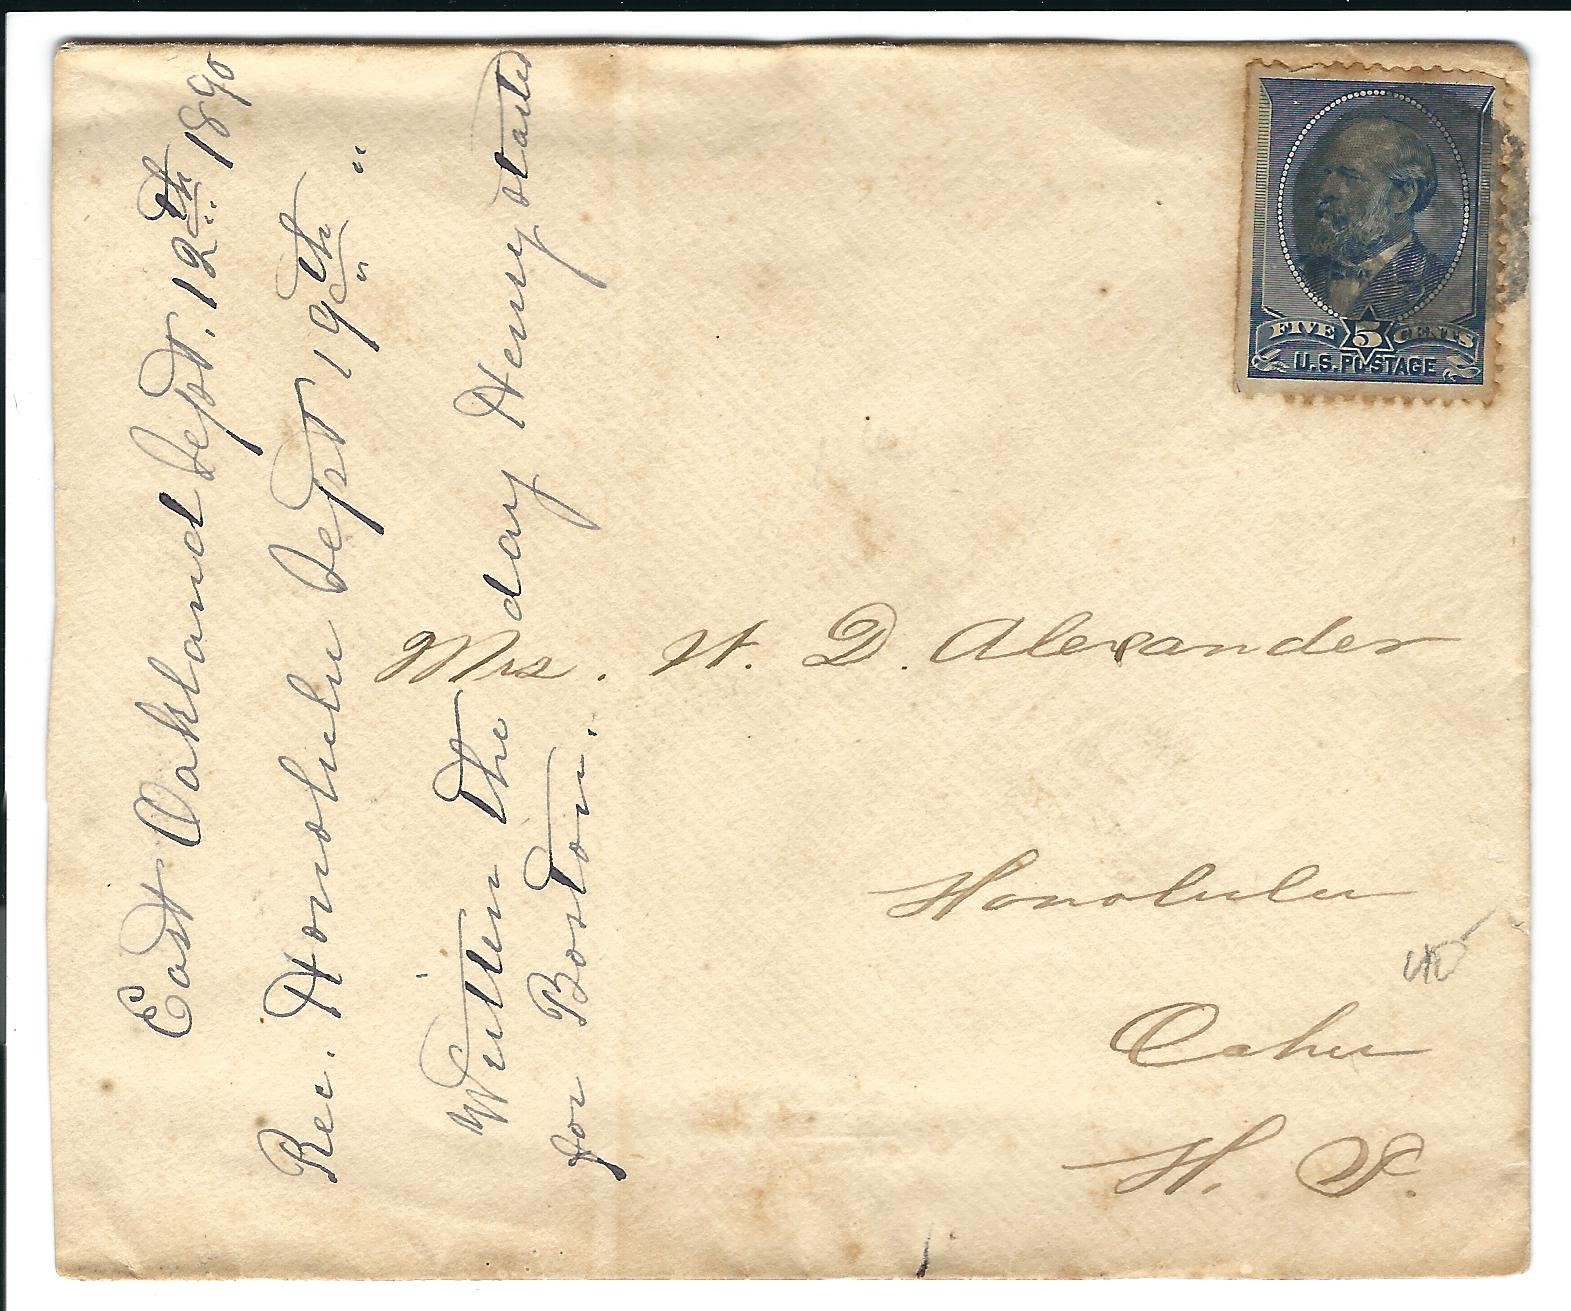 East Oakland Sept. 12th 1890
Rec. Honolulu Sept 19th "
Written the day Henry started
for Boston.
FIVE 5 CENTS
U.S. POSTAGE
Mrs. W. D. Alexander
Honolulu
Oahu
H. I.